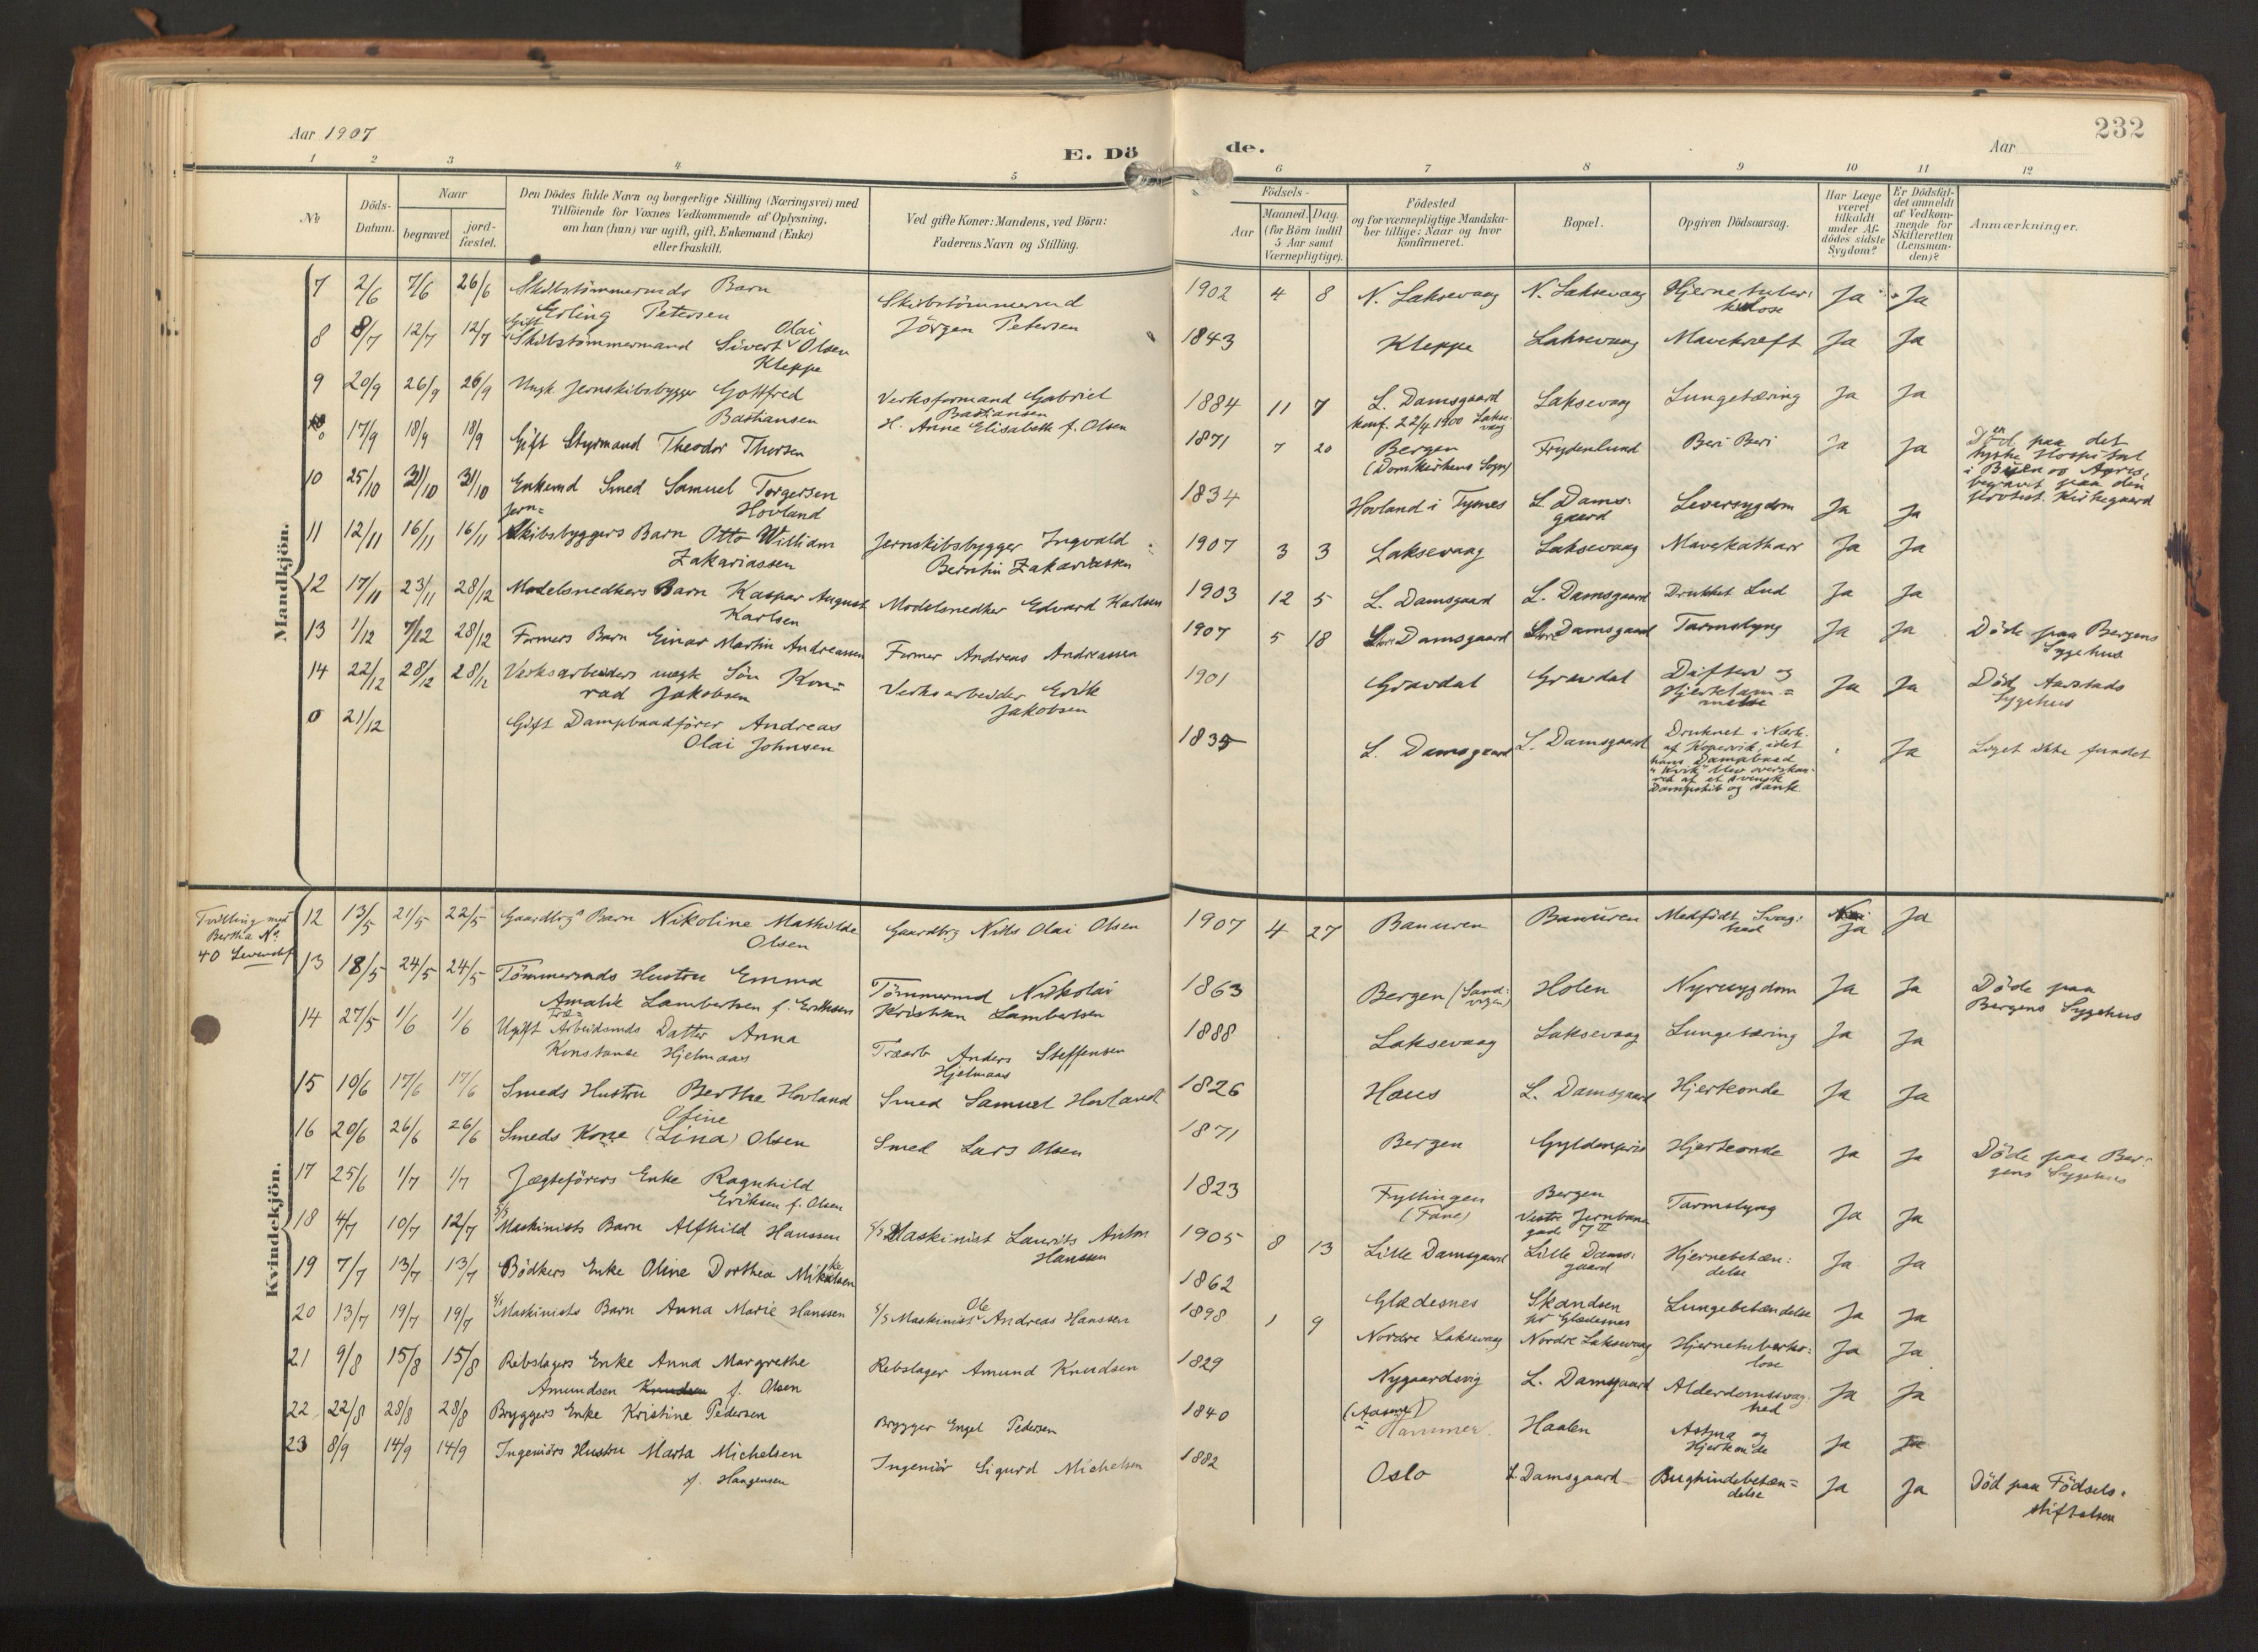 Aar 1907
E. Dö
de.
Aar
232
1 2 3 4 5 6 7 8 9 10 11 12
No
Döds-Datum.
Naar
begravet
jord-fæstet.
Den Dödes fulde Navn og borgerlige Stilling (Næringsvei) med
Tilföiende for Voxnes Vedkommende af Oplysning,
om han (hun) var ugift, gift, Enkemand (Enke)
eller fraskilt.
Ved gifte Koner: Mandens, ved Börn:
Faderens Navn og Stilling.
Födsels-
Aar
Maaned. Dag.
(for Börn indtil
5 Aar samt
Værnepligtige).
Födested
og for værnepligtige Mandska-
ber tillige: Naar og hvor
konfirmeret.
Bopæl.
Opgiven Dödsaarsag.
Har Læge
været
tilkaldt
under Af-
dödes sidste
Sygdom?
Er Dödsfal-
det anmeldt
af Vedkom-
mende for
Skifteretten
(Lensman-
den)?
Anmærkninger.
Mandkjön.
7 2/6 7/6 26/6 Skibstömmermds Barn
Erling Petersen
Skibstömmermd
Jörgen Petersen
1902 4 8 N. Laksevaag N. Laksevaag Hjernetuber:
kulose Ja Ja
8 8/7 12/7 12/7 Gift Skibstömmermand Sivert Olai Olsen
Kleppe
1843 Kleppe Laksevaag Mavekræft Ja Ja
9 20/9 26/9 26/9 Ungk. Jernskibsbygger Gottfred
Bastiansen
Verksformand Gabriel
Bastiansen
H. Anne Elisabeth f. Olsen
1884 11 7 L. Damsgaard
konf. 22/4 1900 Lakse-
vaag
Laksevaag Lungetæring Ja Ja
0 17/9 18/9 18/9 Gift Styrmand Theodor Thorsen
1871 7 20 Bergen
(Domkirkens Sogn)
Frydenlund Beri Beri Ja Ja
Död paa det
tyske Hospital
i Buen os Ayres,
begravet paa den
protest. Kirkegaard
10 25/10 31/10 31/10 Enkemd Smed Samuel Torgersen
Hovland
1834 Hovland i Tysnes L. Dams-
gaard Leversygdom Ja Ja
11 12/11 16/11 16/11 Jern=
Skibsbyggers Barn Otto William
Zakariassen
Jernskibsbygger Ingvald
Berntin Zakariassen
1907 3 3 Laksevaag Laksevaag Mavekatharr Ja Ja
12 17/11 23/11 28/12 Modelsnedkers Barn Kaspar August
Karlsen
Modelsnedker Edvard Karlsen
1903 12 5 L. Damsgaard L. Damsgaard Drukket Lud Ja Ja
13 1/12 7/12 28/12 Formers Barn Einar Martin Andreassen
Former Andreas Andreassen
1907 5 18 Damsgaard Damsgaard Tarmslyng Ja Ja
Döde paa Bergens
Sygehus
14 22/12 28/12 28/12 Verksarbeiders ungk Sön Kon=
rad Jakobsen
Verksarbeider Erik
Jakobsen
1901 Gravdal Gravdal Difteri og
Hjertelam=
melse Ja Ja
Död Aarstads
Sygehus
0 21/12 Gift Dampbaadförer Andreas
Olai Johnsen
1835 L. Damsgaard L. Damsgaard
Druknet i Nærh.
af Kopervik, idet
hans Dampbaad
"Kvik" blev overskaa-
ret af et svensk
Dampskib og sank
Ja Liget ikke fundet
Kvindekjön.
Tvilling med
Bertha No
40 Levendef
12 13/5 21/5 22/5 Gaardbrgs Barn Nikoline Mathilde
Olsen
Gaardbrg Nils Olai Olsen
1907 4 27 Banuren Banuren Medfödt Svag:
hed Nei Ja Ja
13 18/5 24/5 24/5 Tömmermds Hustru Emma
Amalie Lambertsen f. Eriksen
Tömmermd Nikolai
Kristian Lambertsen
1863 Bergen (Sand-
vigen) Holen Nyresygdom Ja Ja
Döde paa
Bergens Sygehus
14 27/5 1/6 1/6 Ugift Træ= Arbeidsmds Datter Anna
Konstanse Hjelmaas
Træarb Anders Steffensen
Hjelmaas
1888 Laksevaag Laksevaag Lungetæring Ja Ja
15 10/6 17/6 17/6 Smeds Hustru Berthe Hovland
Smed Samuel Hovland
1826 Haus L. Damsgaard Hjerteonde Ja Ja
16 20/6 26/6 26/6 Smeds Kone Oline (Lina) Olsen
Smed Lars Olsen
1871 Bergen Gyldenpris Hjerteonde Ja Ja
Döde paa Ber-
gens Sygehus
17 25/6 1/7 1/7 Jægteförers Enke Ragnhild
Eriksen f. Olsen
1823 Fyllingen
(Fane)
Bergen
Vestre Jernbane
gade 7 II
Tarmslyng Ja Ja
18 4/7 10/7 12/7 S/S Maskinists Barn Alfhild Hanssen
S/S Maskinist Laurits Anton
Hanssen
1905 8 13 Lille Damsgaard Lille Dams-
gaard Hjernebetæn:
delse Ja Ja
19 7/7 13/7 13/7 Bödkers Enke Oline Dorthea Mikkelsen
1862 Glædesnes Skandsen
pr Glædesnes Lungebetændelse Ja Ja
20 13/7 19/7 19/7 S/S Maskinists Barn Anna Marie Hanssen
S/S Maskinist Ole Andreas Hanssen
1898 1 9 Nordre Laksevaag Nordre Laksevaag Hjernetuberku-
lose Ja Ja
21 9/8 15/8 15/8 Rebslagers Enke Anna Margrethe
Amundsen Knudsen f. Olsen
Rebslager Amund Knudsen
1829 Nygaardsvig L. Damsgaard Alderdomssvag-
hed Ja Ja
22 22/8 28/8 28/8 Bryggers Enke Kristine Pedersen
Brygger Engel Pedersen
1840 Hammer Haalen Astma og
Hjerteonde Ja Ja
23 8/9 14/9 14/9 Ingeniörs Hustru Marta Michelsen
f. Haugensen
Ingeniör Sigurd Michelsen
1882 Oslo L Damsgaard Bughindebetæn=
delse Ja Ja
Död paa Födsels-
stiftelsen